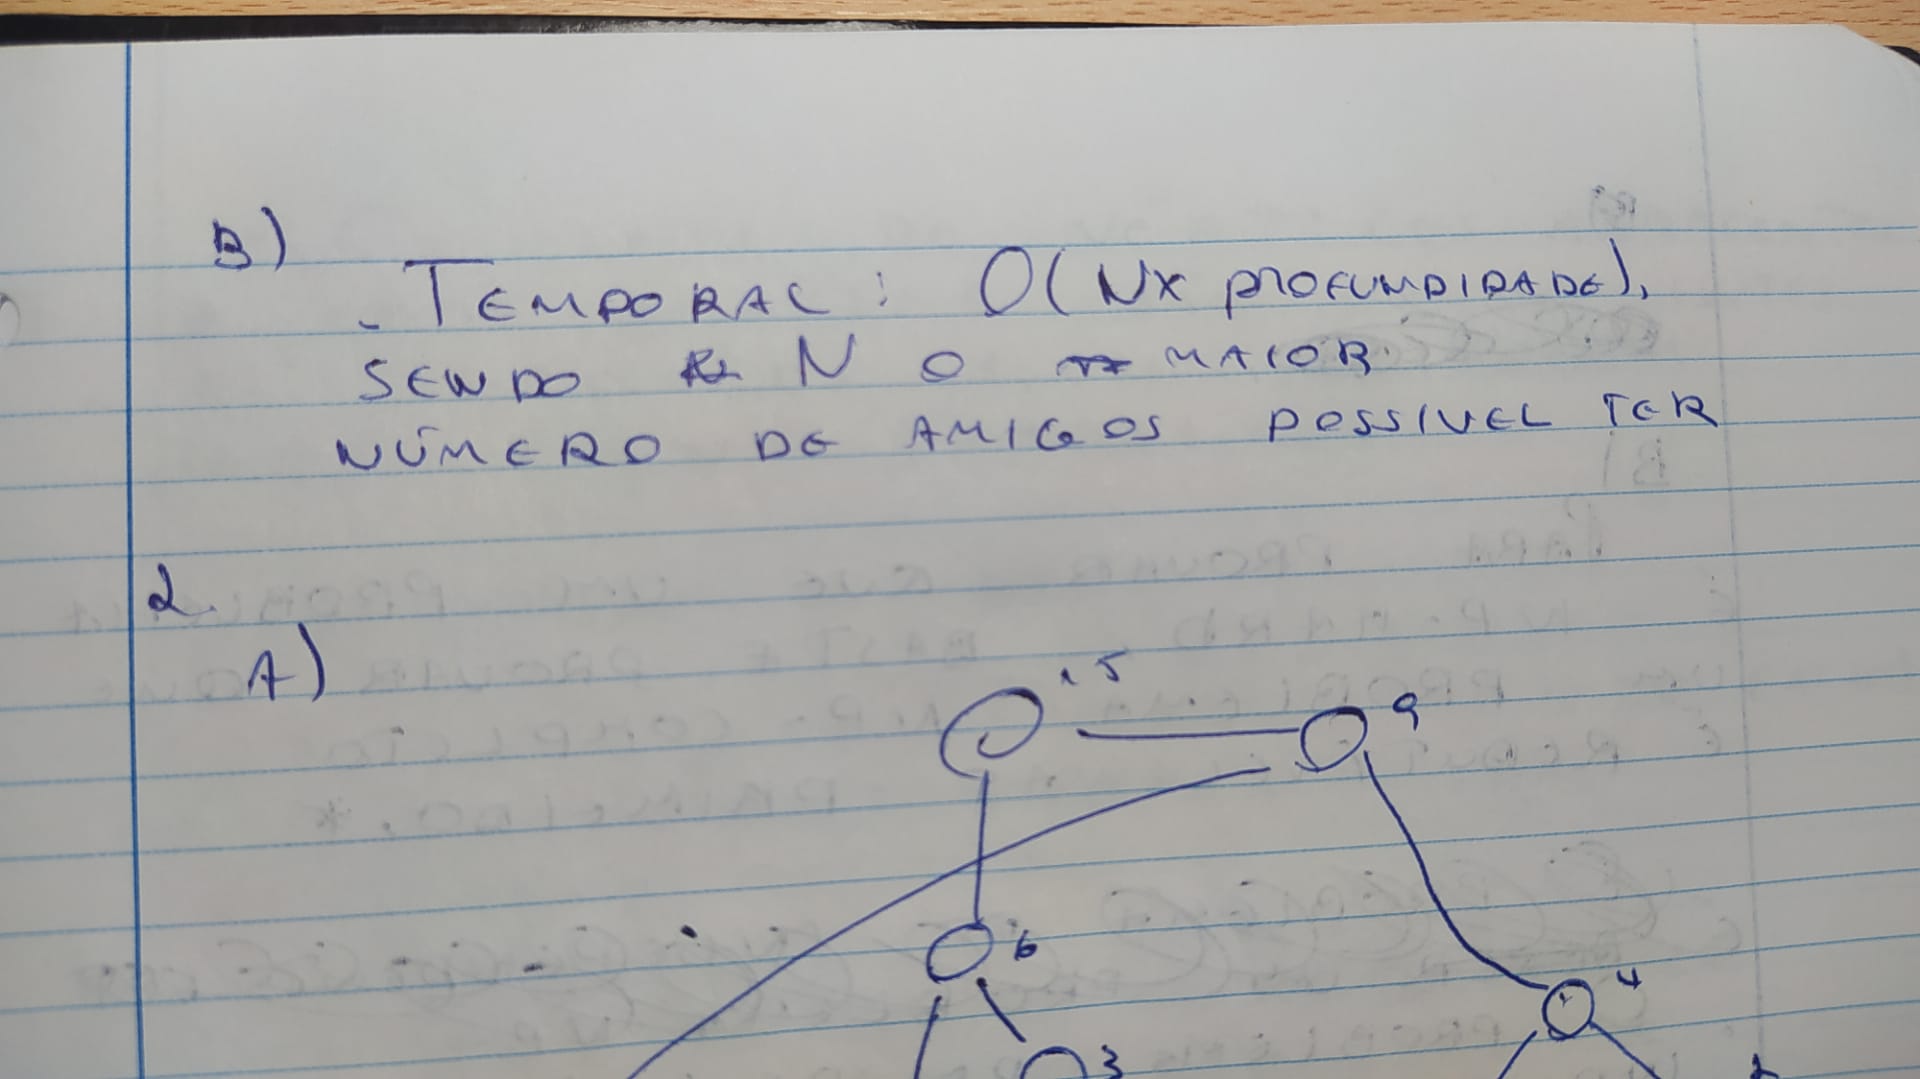 B)
- TEMPORAL: O(N× PROFUNDIDADE),
SENDO N O MAIOR
NÚMERO DE AMIGOS POSSIVEL TER
2.
A)
15
9
6
4
3
2